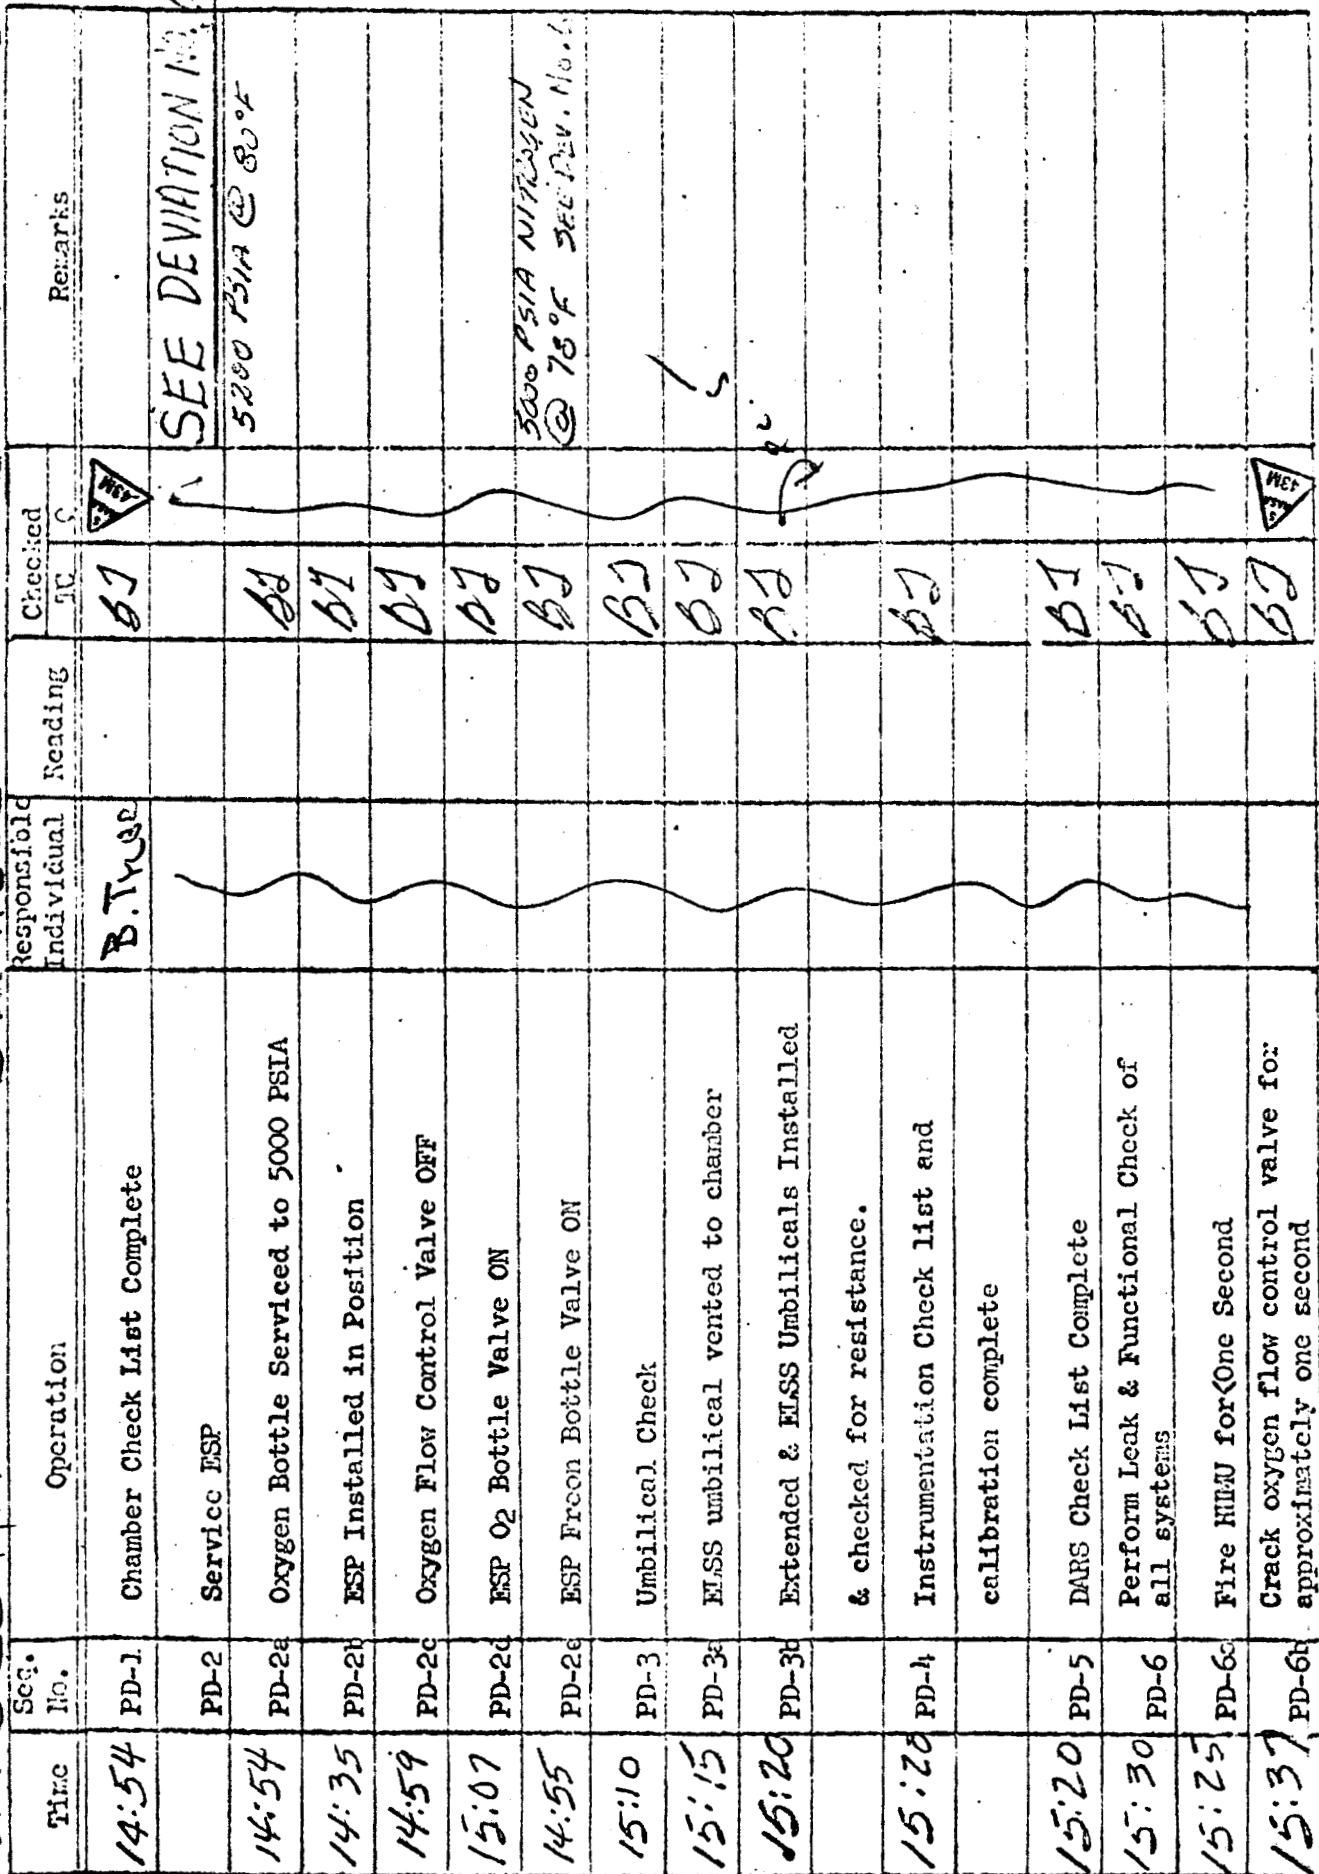 Time Seq. No. Operation Responsible Individual Reading Checked TC Remarks
14:54 PD-1 Chamber Check List Complete B. BJ 43M
PD-2 Service ESP SEE DEVIATION No.
14:54 PD-2a Oxygen Bottle Serviced to 5000 PSIA BJ 5200 PSIA @ 80°F
14:35 PD-2b ESP Installed in Position BJ
14:59 PD-2c Oxygen Flow Control Valve OFF BJ
15:07 PD-2d ESP O2 Bottle Valve ON BJ
14:55 PD-2e ESP Freon Bottle Valve ON BJ 5000 PSIA NITROGEN
@ 78°F SEE DEV. No.
15:10 PD-3 Umbilical Check BJ
15:15 PD-3a ELSS umbilical vented to chamber BJ
15:20 PD-3b Extended & ELSS Umbilicals Installed BJ
& checked for resistance.
15:20 PD-4 Instrumentation Check list and BJ
calibration complete
15:20 PD-5 DARS Check List Complete BJ
15:30 PD-6 Perform Leak & Functional Check of BJ
all systems
15:25 Fire HHMU for<One Second BJ
15:37 PD-6b Crack oxygen flow control valve for BJ 43M
approximately one second